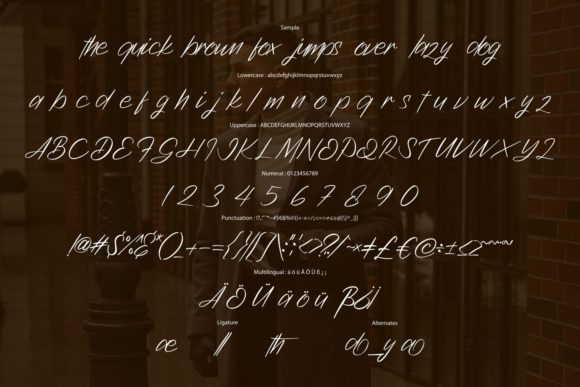 Sample
the quick brown fox jumps over lazy dog
Lowercase : abcdefghijklmnopqrstuvwxyz
a b c d e f g h i j k l m n o p q r s t u v w x y z
Uppercase : ABCDEFGHIJKLMNOPQRSTUVWXYZ
A B C D E F G H I J K L M N O P Q R S T U V W X Y Z
Numeral : 0123456789
1 2 3 4 5 6 7 8 9 0
Punctuation :
Multilingual : ä ö ü Ä Ö Ü ß ¿ ¡
Ä Ö Ü ä ö ü β ¿ ¡
Ligature Alternates
æ ll th do_y ao